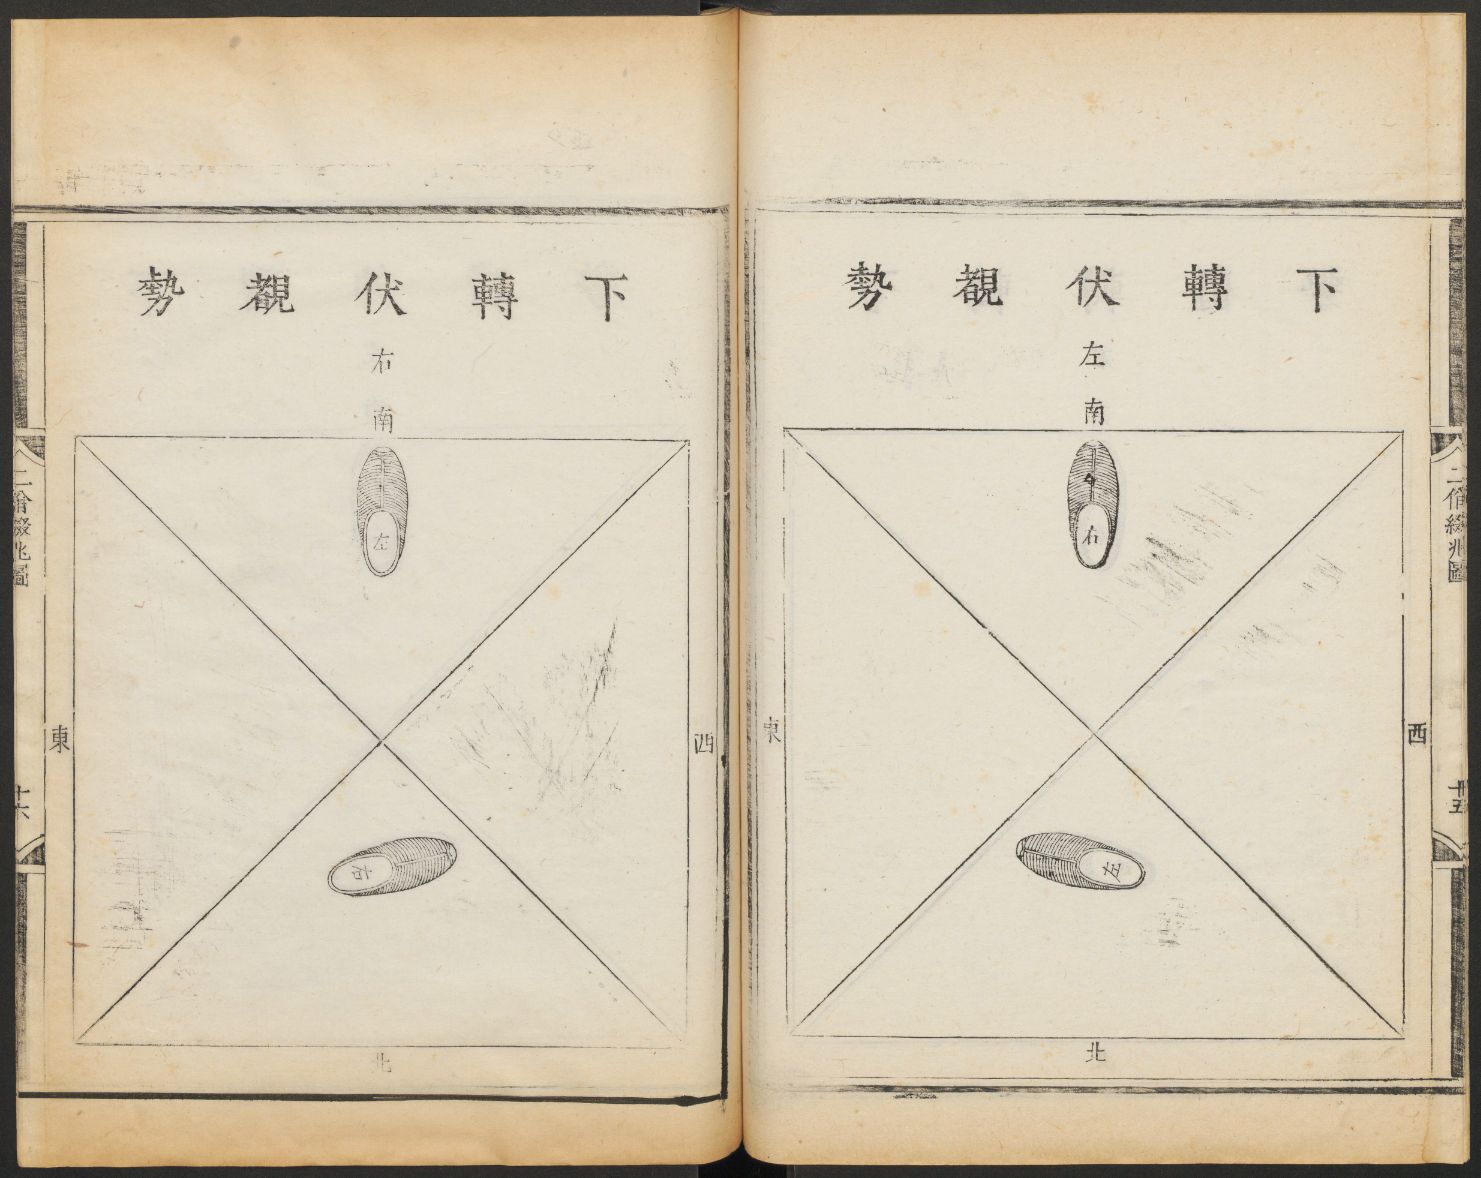 下轉伏覩勢
左
南
右
東
西
左
北
二佾綴兆圖
十五
下轉伏覩勢
右
南
左
東
西
右
北
二佾綴兆圖
十六